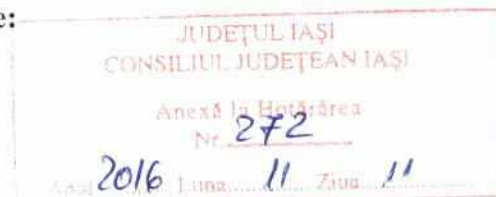 e:
JUDEŢUL IAŞI
CONSILIUL JUDEŢEAN IAŞI
Anexă la Hotărârea
Nr. 272
Anul 2016 Luna 11 Ziua 11